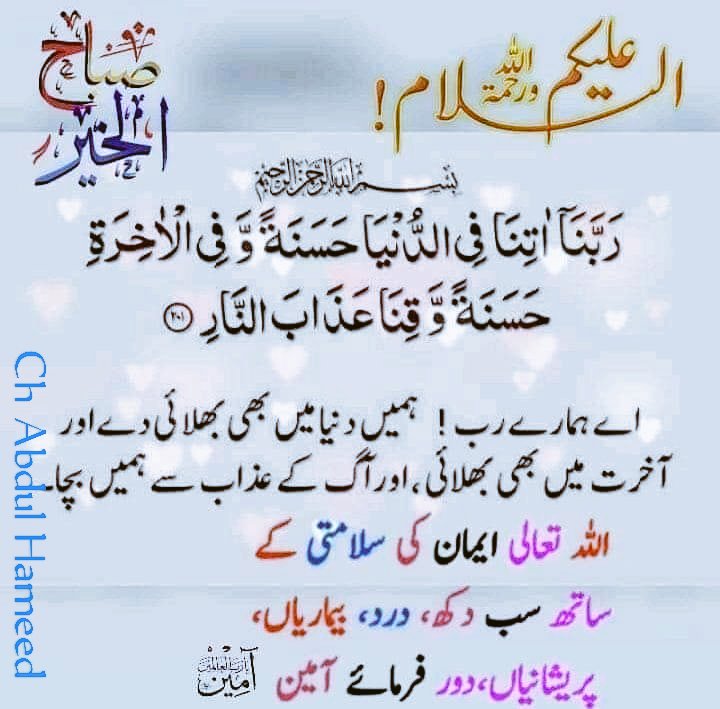 السلام علیکم ورحمۃ اللہ!
صباح
الخیر
بسم اللہ الرحمن الرحیم
رَبَّنَآ اٰتِنَا فِی الدُّنْیَا حَسَنَةً وَّ فِی الْاٰخِرَةِ
حَسَنَةً وَّ قِنَا عَذَابَ النَّارِ ﴿۲۰۱﴾
اے ہمارے رب! ہمیں دنیا میں بھی بھلائی دے اور
آخرت میں بھی بھلائی، اور آگ کے عذاب سے ہمیں بچا۔
اللہ تعالی ایمان کی سلامتی کے
ساتھ سب دکھ، درد، بیماریاں،
پریشانیاں، دور فرمائے آمین
آمین یا رب العالمین
Ch Abdul Hameed